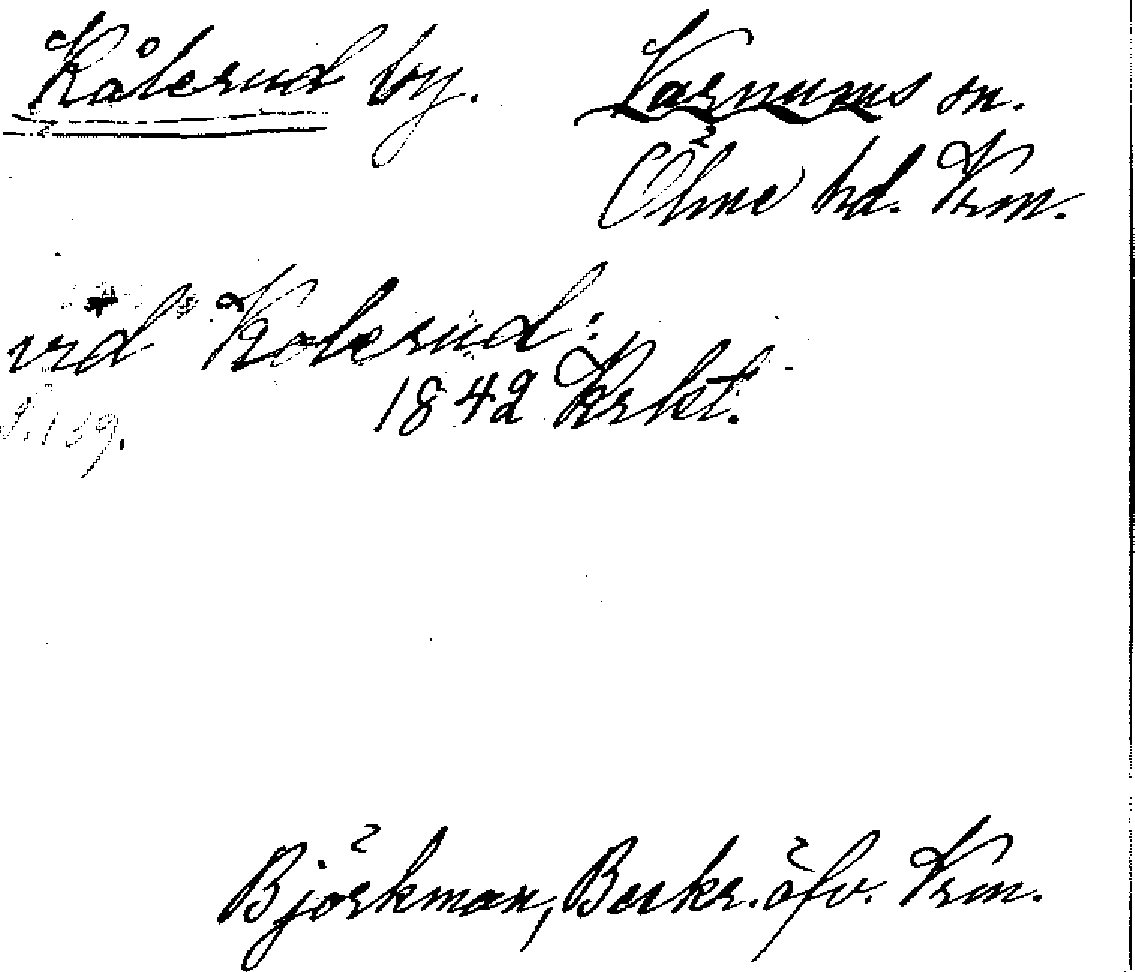 Kålerud by. Varnums sn.
Ölme hd. Vrm.
vid Kolerud:
1842 Krkt.
Björkman, Beskr. öfv. Vrm.